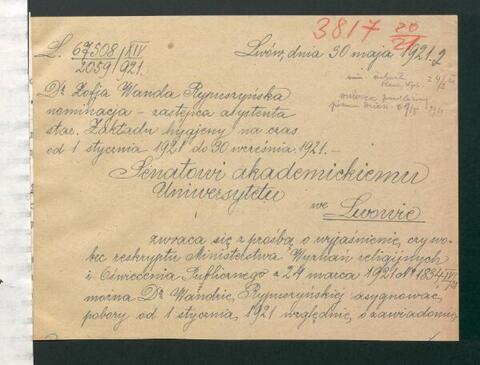 3817 20/21
L. 67508/XIV
2059/921.
Lwów, dnia 30 maja 1921.
Dr Zofja Wanda Rypuszyńska
nominacja - zastępca asystenta
star. Zakładu hygjeny na czas
od 1 stycznia 1921 do 30 września 1921. -
Senatowi akademickiemu
Uniwersytetu
we Lwowie
zwraca się z prośbą o wyjaśnienie, czy wo-
bec reskryptu Ministerstwa Wyznań religijnych
i Oświecenia Publicznego z 24 marca 1921 № 1894-IV
można Dr Wandzie Rypuszyńskiej asygnować
pobory od 1 stycznia 1921 względnie, o zawiadomie